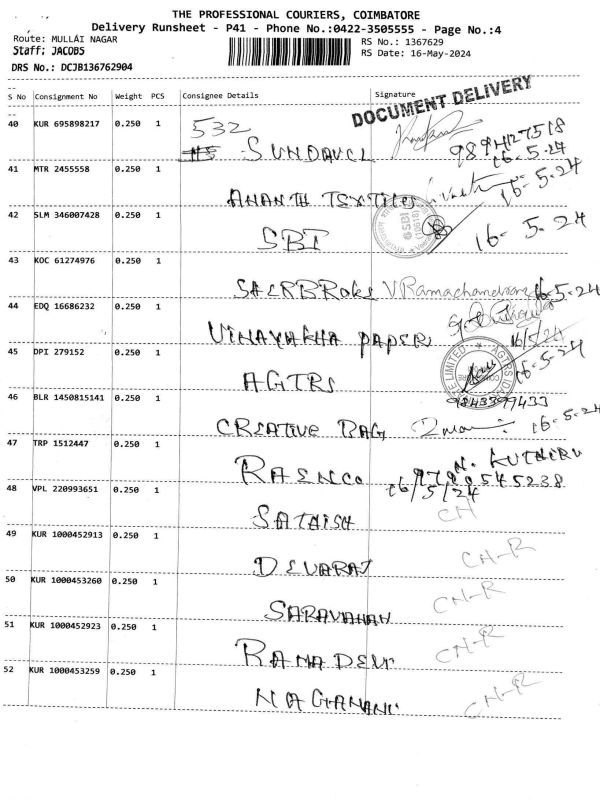 THE PROFESSIONAL COURIERS, COIMBATORE
Delivery Runsheet - P41 - Phone No.:0422-3505555 - Page No.:4
Route: MULLAI NAGAR
RS No.: 1367629
Staff: JACOBS
RS Date: 16-May-2024
DRS No.: DCJB136762904
S No Consignment No Weight PCS Consignee Details Signature
DOCUMENT DELIVERY
40 KUR 695898217 0.250 1 532
SUNDAVEL
16-5-24
41 MTR 2455558 0.250 1
ANANTH TEXTILES 16-5-24
42 SLM 346007428 0.250 1
SBI 16-5-24
43 KOC 61274976 0.250 1
V Ramachandran 16-5-24
44 EDQ 16686232 0.250 1
VINAYAKHA PAPERS 16/5/24
45 DPI 279152 0.250 1
AGTRS 16-5-24
9843399433
46 BLR 1450815141 0.250 1
CREATIVE BAG 16-5-24
47 TRP 1512447 0.250 1
RAENCO
16/5/24
48 VPL 220993651 0.250 1 CN
SATHISH
49 KUR 1000452913 0.250 1 CN-R
DEVARAJ
50 KUR 1000453260 0.250 1 CN-R
SARAVANAN
51 KUR 1000452923 0.250 1 CN-R
RAMADEVI
52 KUR 1000453259 0.250 1 CN-R
NAGAMANI